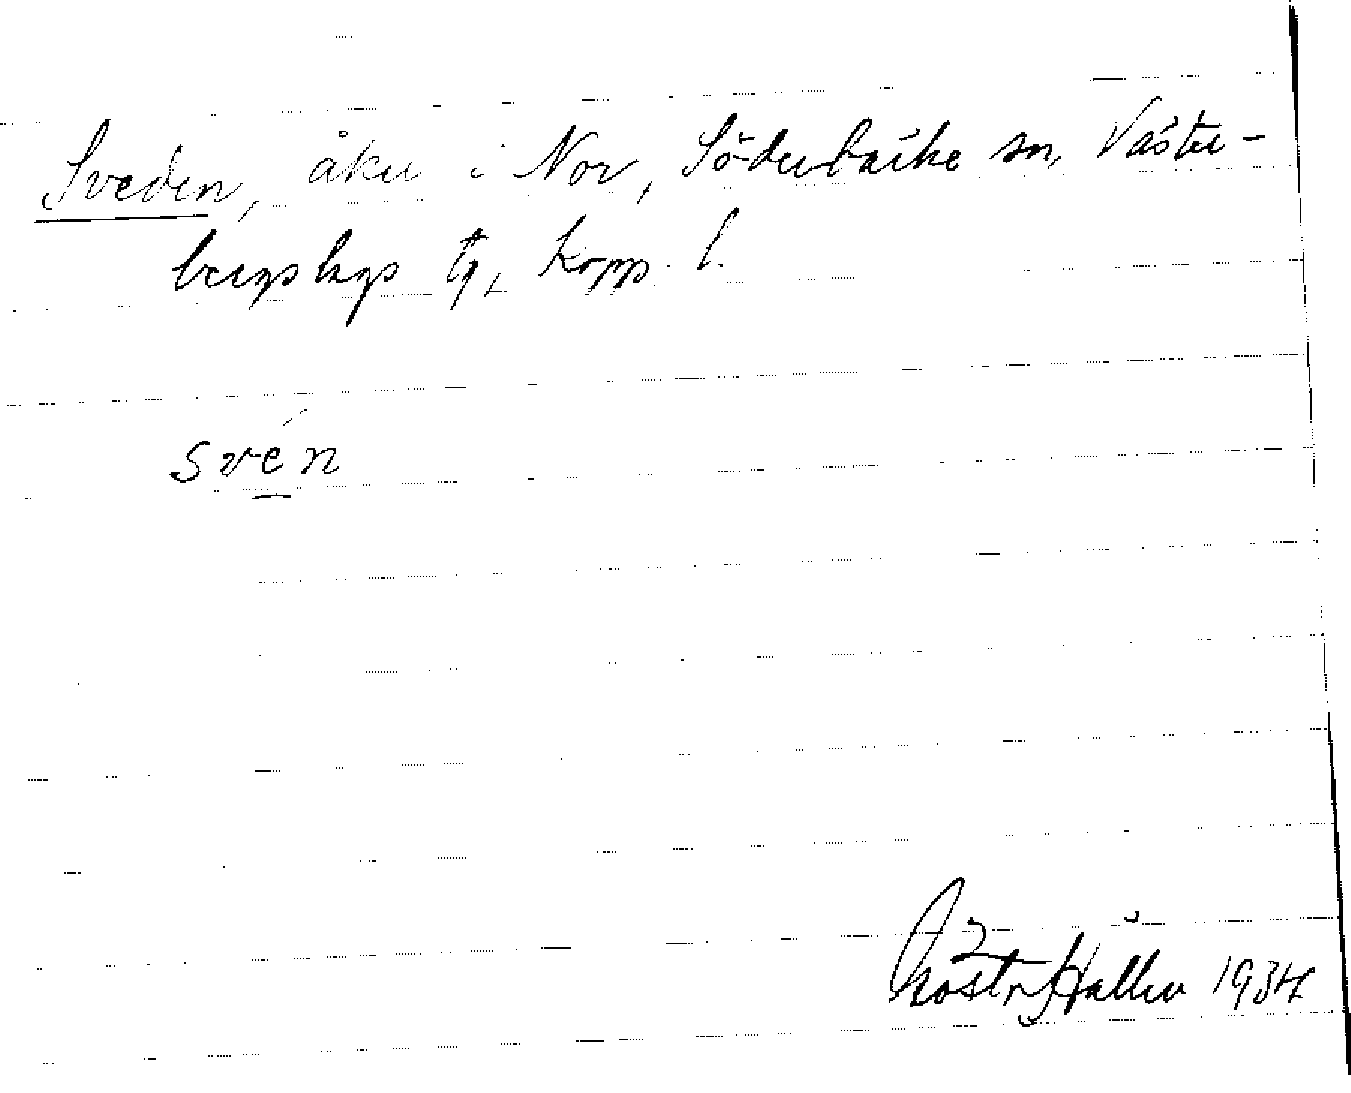 Sveden, åker i Nor, Söderbärke sn, Väster-
bergslags tg, Kopp. l.
svén
Gösta Hallen 1934